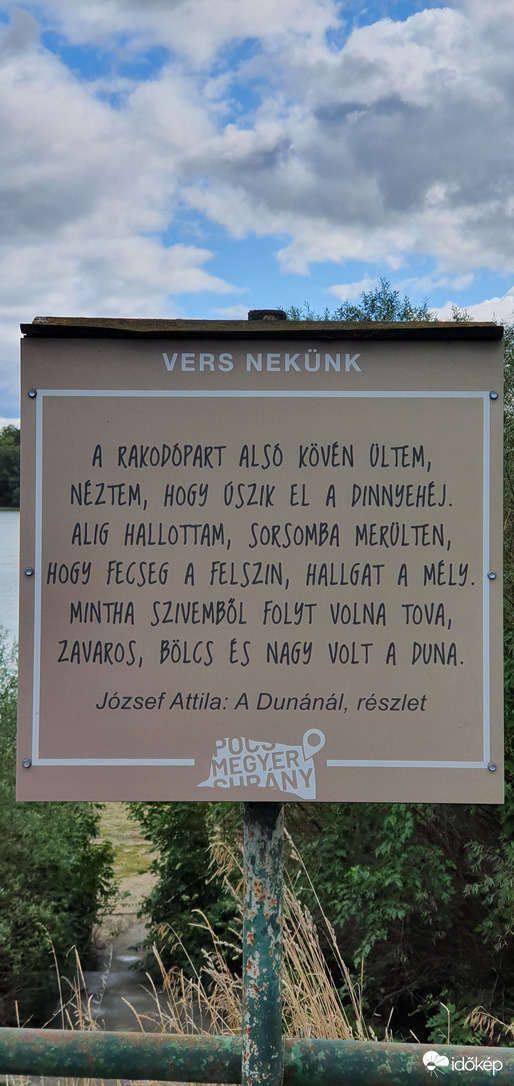 VERS NEKÜNK
A RAKODÓPART ALSÓ KÖVÉN ÜLTEM,
NÉZTEM, HOGY ÚSZIK EL A DINNYEHÉJ.
ALIG HALLOTTAM, SORSOMBA MERÜLTEN,
HOGY FECSEG A FELSZIN, HALLGAT A MÉLY.
MINTHA SZIVEMBŐL FOLYT VOLNA TOVA,
ZAVAROS, BÖLCS ÉS NAGY VOLT A DUNA.
József Attila: A Dunánál, részlet
POCS
MEGYER
SURÁNY
időkép